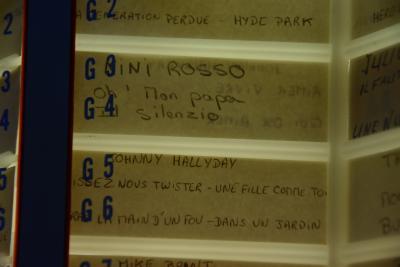 G 2
GENERATION PERDUE - HYDE PARK
G 3
NINI ROSSO
Oh! Mon papa
G 4
Il Silenzio
G 5
JOHNNY HALLYDAY
ISSEZ NOUS TWISTER - UNE FILLE COMME TOI
G 6
LA MAIN D'UN FOU - DANS UN JARDIN
G 7
MIKE BRANT
2
3
4
5
6
HERE
JULIO
IL FAUT
UNE N